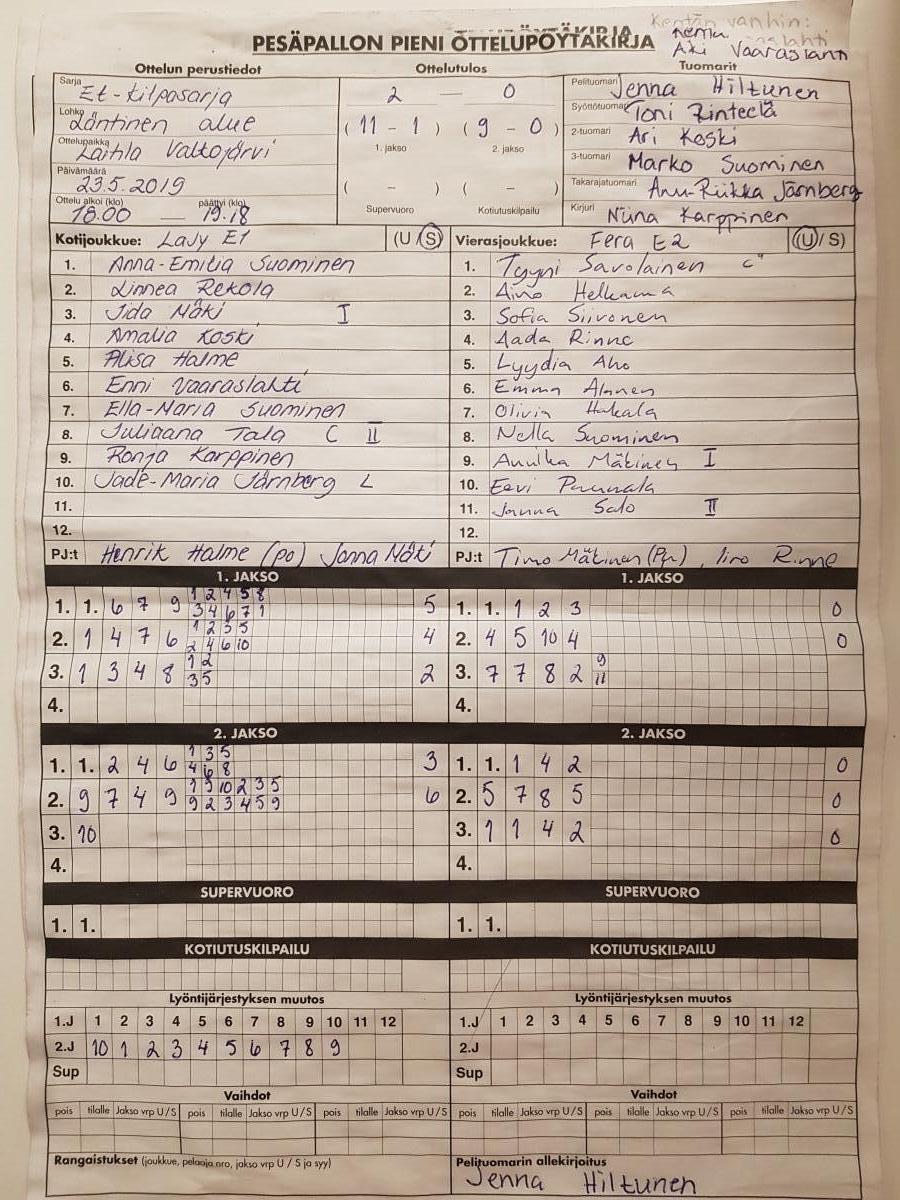 Kentän vanhin:
PESÄPALLON PIENI OTTELUPÖYTÄKIRJA
Aki Vaaraslahti
Ottelun perustiedot Ottelutulos Tuomarit
Sarja E1-kilpasarja
Lohko Läntinen alue
Ottelupaikka Laitila Valkojärvi
Päivämäärä 23.5.2019
Ottelu alkoi (klo) 18.00 — päättyi (klo) 19.18
2 — 0
(11 - 1) (9 - 0)
1. jakso 2. jakso
( - ) ( - )
Supervuoro Kotiutuskilpailu
Pelituomari Jenna Hiltunen
Syöttötuomari Toni Rintelä
2-tuomari Ari Koski
3-tuomari Marko Suominen
Takarajatuomari Anu-Riikka Järnberg
Kirjuri Niina Karppinen
Kotijoukkue: LaJy E1 (U/S)
1. Anna-Emilia Suominen
2. Linnea Rekola
3. Iida Mäki I
4. Amalia Koski
5. Alisa Halme
6. Enni Vaaraslahti
7. Ella-Maria Suominen
8. Juliaana Tala C II
9. Ronja Karppinen
10. Jade-Maria Järnberg L
11.
12.
PJ:t Henrik Halme (po) Janna Mäki
Vierasjoukkue: Fera E2 (U/S)
1. Tyyni Savolainen "C"
2. Aino Helkama
3. Sofia Siivonen
4. Aada Rinne
5. Lyydia Aho
6. Emma Alanen
7. Olivia Hakala
8. Nella Suominen
9. Annika Mäkinen I
10. Eevi
11. Janna Salo II
12.
PJ:t Timo Mäkinen (Pp), Iiro Rinne
1. JAKSO
1. 1. 6 7 9 1 2 4 5 8 5
3 4 6 7 1
2. 1 4 7 6 1 2 3 5 4
2 4 6 10
3. 1 3 4 8 1 2 2
3 5
4.
1. JAKSO
1. 1. 1 2 3 0
2. 4 5 10 4 0
3. 7 7 8 2 9
11
4.
2. JAKSO
1. 1. 2 4 6 1 3 5 3
4 6 8
2. 9 7 4 9 1 9 10 2 3 5 6
9 2 3 4 5 9
3. 10
4.
2. JAKSO
1. 1. 1 4 2 0
2. 5 7 8 5 0
3. 1 1 4 2 0
4.
SUPERVUORO SUPERVUORO
1. 1. 1. 1.
KOTIUTUSKILPAILU KOTIUTUSKILPAILU
Lyöntijärjestyksen muutos Lyöntijärjestyksen muutos
1.J 1 2 3 4 5 6 7 8 9 10 11 12 1.J 1 2 3 4 5 6 7 8 9 10 11 12
2.J 10 1 2 3 4 5 6 7 8 9 2.J
Sup Sup
Vaihdot Vaihdot
pois tilalle Jakso vrp U/S pois tilalle Jakso vrp U/S pois tilalle Jakso vrp U/S pois tilalle Jakso vrp U/S pois tilalle Jakso vrp U/S pois tilalle Jakso vrp U/S
Rangaistukset (joukkue, pelaaja nro, jakso vrp U / S ja syy) Pelituomarin allekirjoitus
Jenna Hiltunen